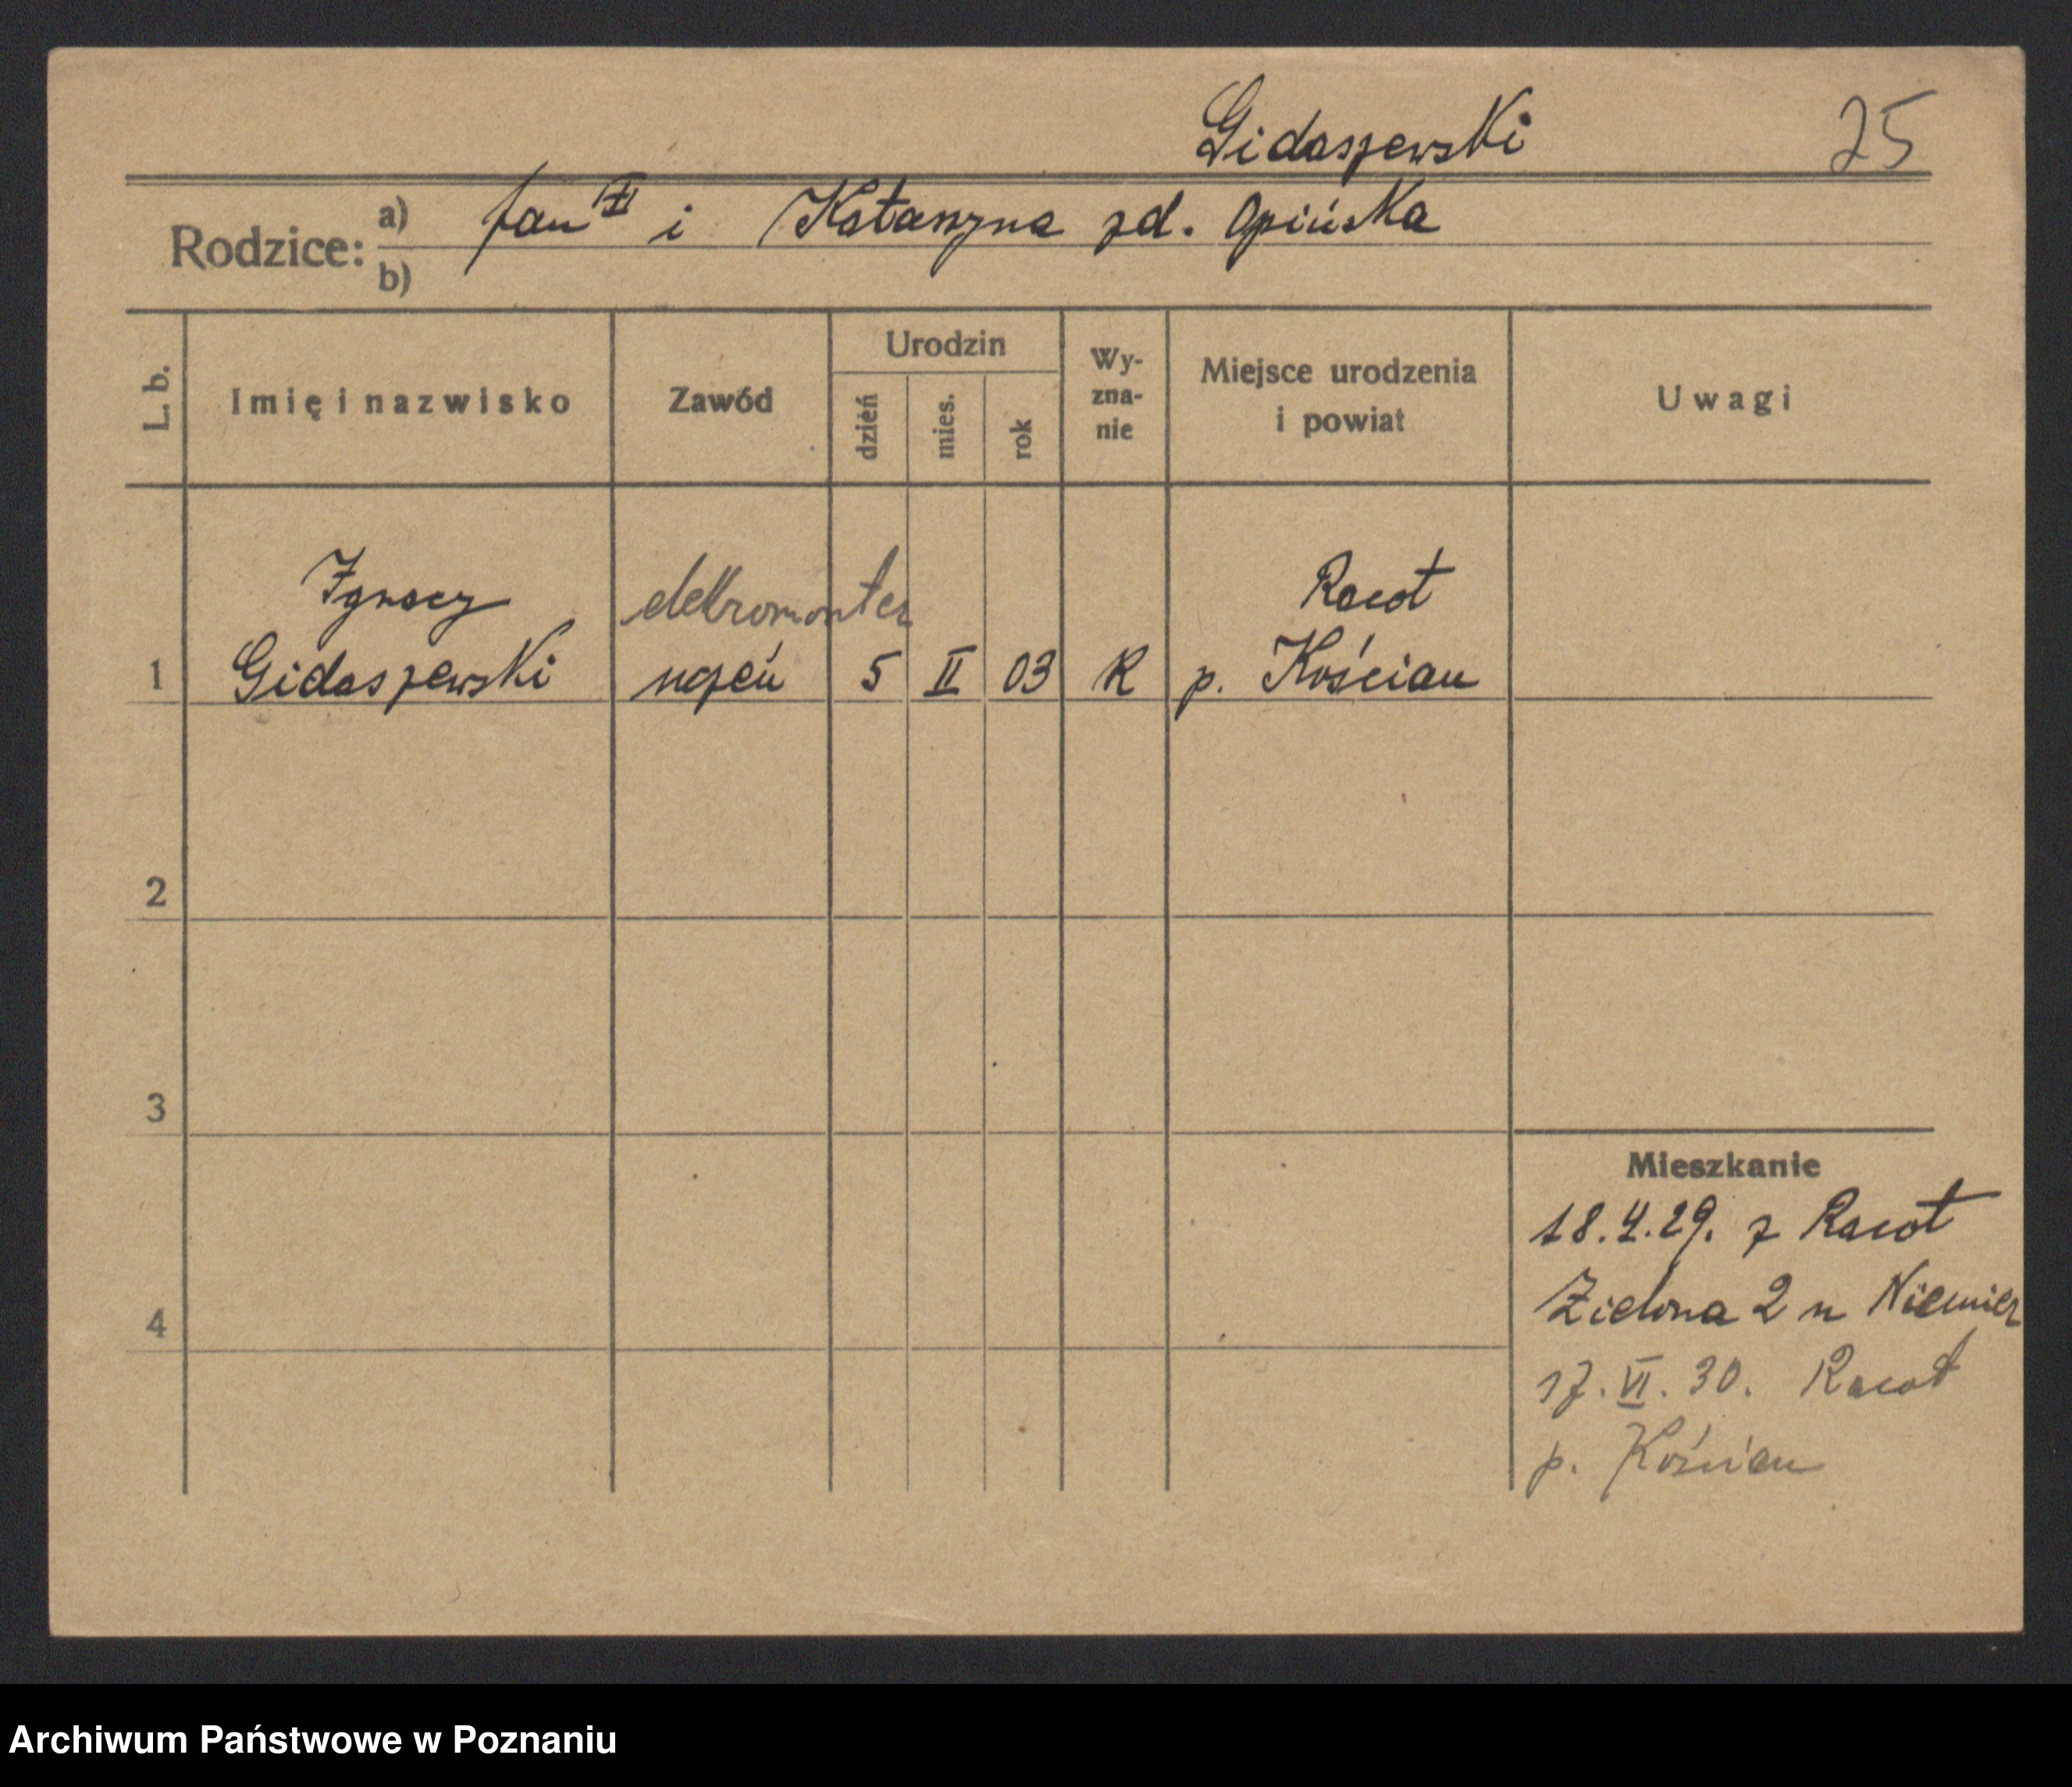 Gidaszewski 25
Rodzice: a) Jan i Katarzyna zd. Opińska
b)
L. b. Imię i nazwisko Zawód Urodzin dzień mies. rok Wy-zna-nie Miejsce urodzenia i powiat Uwagi
Ignacy elektromonter Racot
1 Gidaszewski uczeń 5 II 03 K p. Kościan
2
3
Mieszkanie
18.4.29. z Racot
4 Zielona 2 u Niemier
17.VI.30. Racot
p. Kościan
Archiwum Państwowe w Poznaniu